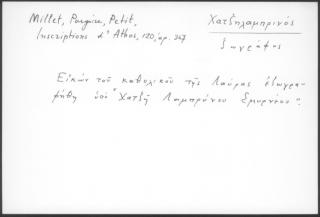 Millet, Pargoire, Petit,
Inscriptions d'Athos, 120, αρ. 367
Χατζηλαμπρινός
ζωγράφος
Εἰκὼν τοῦ καθολικοῦ τῆς Λαύρας ἐζωγρα-
φήθη ὑπὸ "Χατζῆ Λαμπρύνου Σμυρνέου".